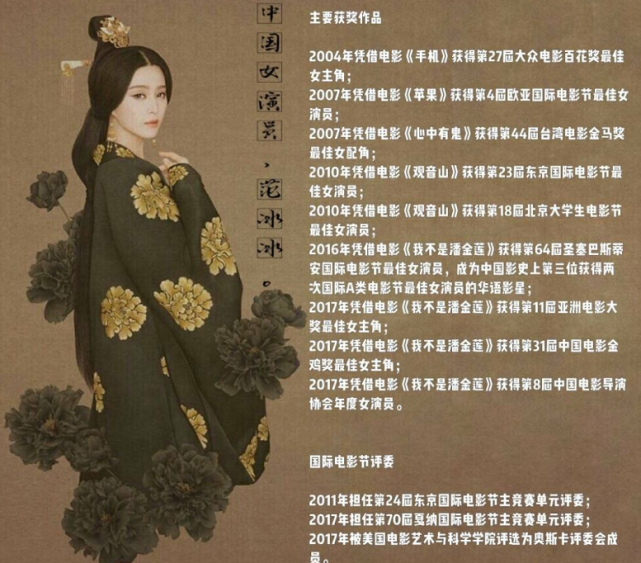 中国女演员,范冰冰。
主要获奖作品
2004年凭借电影《手机》获得第27届大众电影百花奖最佳
女主角;
2007年凭借电影《苹果》获得第4届欧亚国际电影节最佳女
演员;
2007年凭借电影《心中有鬼》获得第44届台湾电影金马奖
最佳女配角;
2010年凭借电影《观音山》获得第23届东京国际电影节最
佳女演员;
2010年凭借电影《观音山》获得第18届北京大学生电影节
最佳女演员;
2016年凭借电影《我不是潘金莲》获得第64届圣塞巴斯蒂
安国际电影节最佳女演员,成为中国影史上第三位获得两
次国际A类电影节最佳女演员的华语影星;
2017年凭借电影《我不是潘金莲》获得第11届亚洲电影大
奖最佳女主角;
2017年凭借电影《我不是潘金莲》获得第31届中国电影金
鸡奖最佳女主角;
2017年凭借电影《我不是潘金莲》获得第8届中国电影导演
协会年度女演员。
国际电影节评委
2011年担任第24届东京国际电影节主竞赛单元评委;
2017年担任第70届戛纳国际电影节主竞赛单元评委;
2017年被美国电影艺术与科学学院评选为奥斯卡评委会成
员。